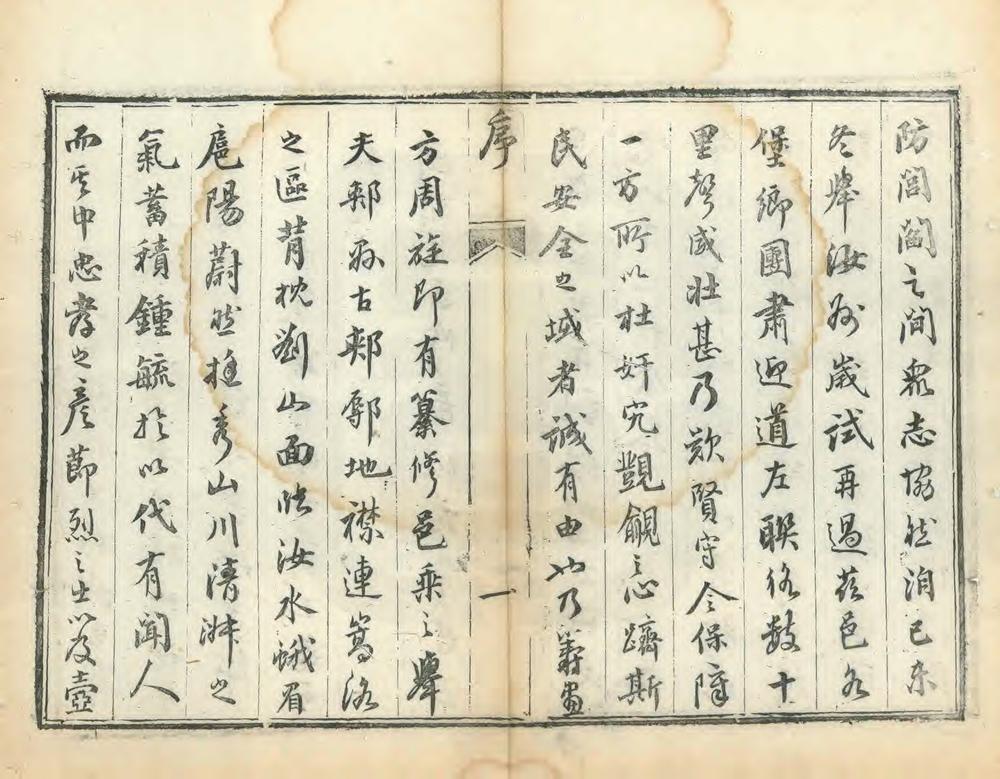 防閭閻之間衆志協然洎己未
冬舉汝州歲試再過茲邑各
堡鄉團肅迎道左聯絡數十
里聲威壯甚乃歎賢守令保障
一方所以杜奸宄覬覦之心躋斯
民安全之域者誠有由也乃籌畫
序
一
方周旋即有纂修邑乘之舉
夫郟縣古郟鄏地襟連嵩洛
之區背枕劉山面帶汝水峨眉
扈陽蔚然挺秀山川清淑之
氣蓄積鍾毓於以代有聞人
而其中忠孝之彥節烈之士以及壼